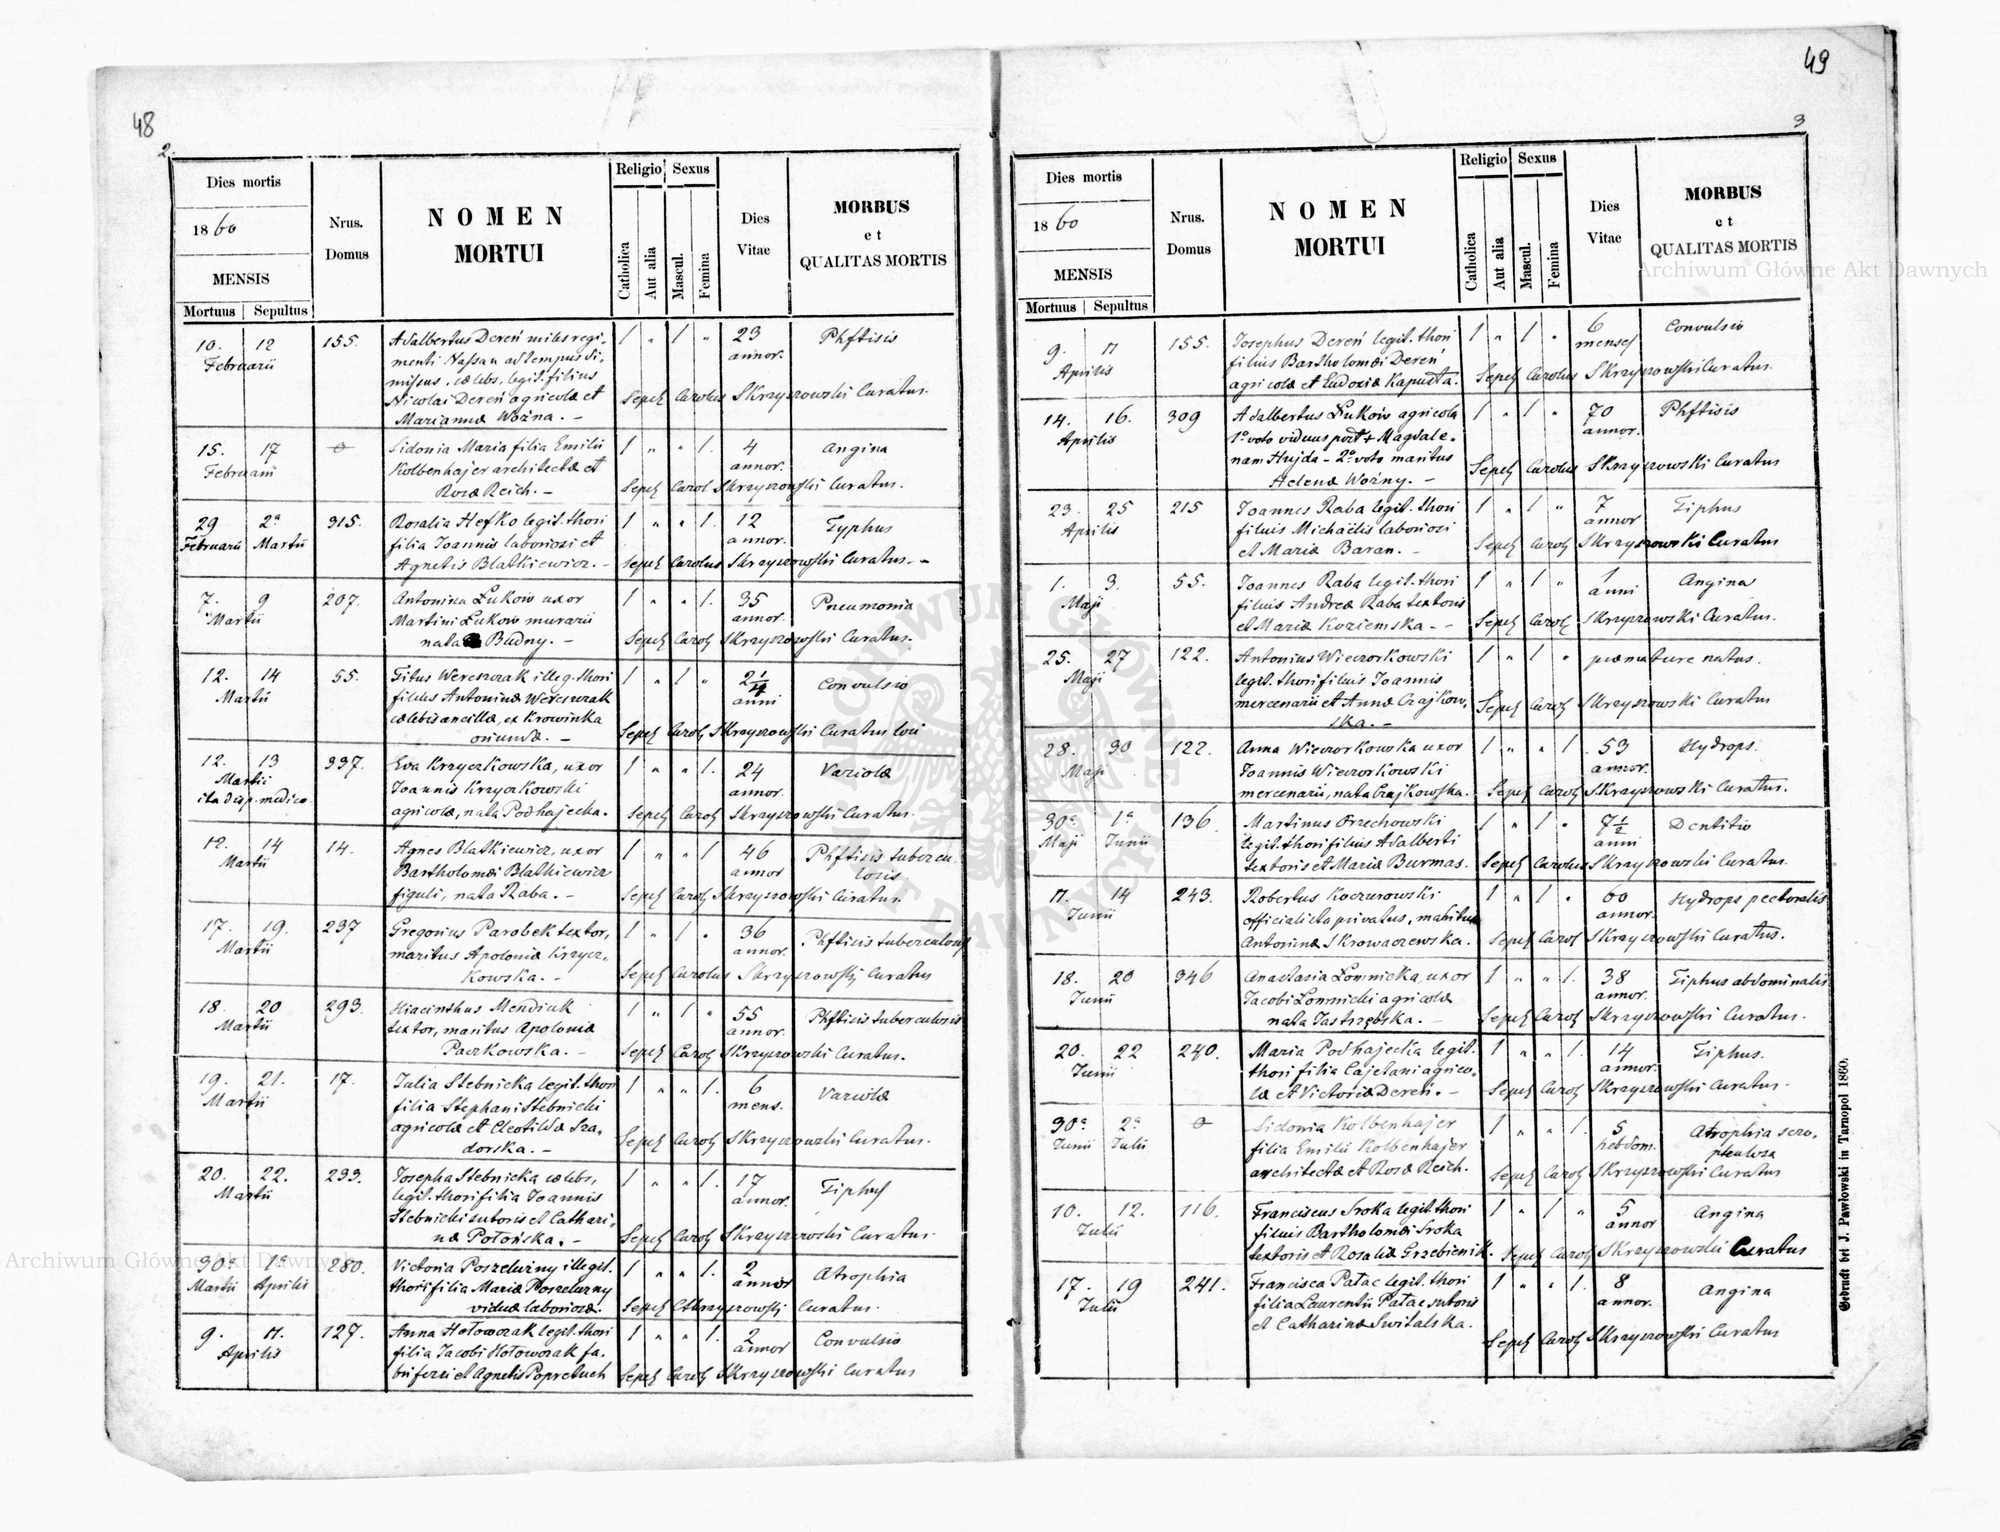 48
2.
Dies mortis
1860
MENSIS
Mortuus Sepultus
Nrus.
Domus
NOMEN
MORTUI
Religio Sexus
Catholica
Aut alia
Mascul.
Femina
Dies
Vitae
MORBUS
et
QUALITAS MORTIS
10. 12 155. Adalbertus Dereń miles regi- 1 " 1 " 23 Phftisis
Februarii menti Nassau ad tempus di- annor.
missus, cælebs, legit. filius
Nicolai Dereń agricolæ et Sepel Carolus Skrzyszowski Curatus.
Mariannæ Woźna. -
15. 17 0 Sidonia Maria filia Emilii 1 " " 1. 4 Angina
Februarii Kolbenhajer architectæ et annor.
Rosæ Reich. - Sepel Carol Skrzyszowski Curatus.
29 2a 315. Rosalia Hefko legit. thori 1 " " 1. 12 Typhus
Februarii Martii filia Joannis laboriosi et annor.
Agnetis Blatkiewicz. - Sepel Carolus Skrzyszowski Curatus. -
7. 9 207. Antonina Łukow uxor 1 " " 1. 35 Pneumonia
Martii Martini Łukow murarii annor.
nata Budny. - Sepel Carol Skrzyszowski Curatus.
12. 14 55. Titus Wereszczak illeg. thori 1 " 1 " 2 1/4 Convulsio
Martii filius Antoninæ Wereszczak anni
cælebis ancillæ, ex Krowinka
oriundæ. - Sepel Carol Skrzyszowski Curatus loci
12. 13 337. Eva Krzyczkowska, uxor 1 " " 1. 24 Variolæ
Martii Joannis Krzyczkowski annor.
ita disp. medico. agricolæ, nata Podhajecka. Sepel Carol Skrzyszowski Curatus.
12. 14 14. Agnes Blatkiewicz, uxor 1 " " 1 46 Phftisis tubercu
Martii Bartholomæi Blatkiewicz annor losis.
figuli, nata Raba. - Sepel Carol Skrzyszowski Curatus.
17. 19. 237 Gregorius Parobek textor, 1 " 1 " 36 Phftisis tuberculosis
Martii maritus Apoloniæ Krzycz- annor.
kowska. - Sepel Carolus Skrzyszowski Curatus
18. 20 293. Hiacinthus Mendiuk 1 " 1 " 55 Phftisis tuberculosis
Martii textor, maritus Apoloniæ annor.
Paczkowska. - Sepel Carol Skrzyszowski Curatus.
19. 21. 17. Julia Stebnicka legit. thori 1 " " 1. 6 Variolæ
Martii filia Stephani Stebnicki mens.
agricolæ et Cleotildæ Sza-
dorska. - Sepel Carol Skrzyszowski Curatus.
20. 22. 233. Josepha Stebnicka cælebs, 1 " " 1. 17 Tiphus
Martii legit. thori filia Joannis annor.
Stebnicki sutoris et Cathari-
næ Potońska. - Sepel Carol Skrzyszowski Curatus.
30a 1a 280. Victoria Poszelużny illegit. 1 " " 1. 2 Atrophia
Martii Aprilis thori filia Mariæ Poszelużny annor
viduæ laboriosæ. Sepel C Skrzyszowski Curatus.
9. 11. 127. Anna Hołowczak legit. thori 1 " " 1. 2 Convulsio
Aprilis filia Jacobi Hołowczak fa- annor
bri ferri et Agnetis Popreluch Sepel Carol Skrzyszowski Curatus
49
3
Dies mortis
1860
MENSIS
Mortuus Sepultus
Nrus.
Domus
NOMEN
MORTUI
Religio Sexus
Catholica
Aut alia
Mascul.
Femina
Dies
Vitae
MORBUS
et
QUALITAS MORTIS
9. 11 155. Josephus Dereń legit. thori 1 " 1 " 6 Convulsio
Aprilis filius Bartholomæi Dereń menses
agricolæ et Eudoxiæ Kapusta. Sepel Carolus Skrzyszowski Curatus.
14. 16. 309 Adalbertus Łukow agricola 1 " 1 " 70 Phftisis
Aprilis 1o voto viduus post + Magdale- annor.
nam Hujda - 2o voto maritus
Helenæ Woźny. - Sepel Carolus Skrzyszowski Curatus
23. 25 215 Joannes Raba legit. thori 1 " 1 " 7 Tiphus
Aprilis filius Michaelis laboriosi annor
et Mariæ Baran. - Sepel Carol Skrzyszowski Curatus
1. 3. 55. Joannes Raba legit. thori 1 " 1 " 1 Angina
Maji filius Andreæ Raba textoris anni
et Mariæ Koziemska. - Sepel Carol Skrzyszowski Curatus.
25. 27 122. Antonius Wieczorkowski 1 " 1 " præmature natus.
Maji legit. thori filius Joannis
mercenarii et Annæ Czajkow-
ska. - Sepel Carol Skrzyszowski Curatus
28. 30 122. Anna Wieczorkowska uxor 1 " " 1. 53 Hydrops.
Maji Joannis Wieczorkowski annor.
mercenarii, nata Czajkowska. Sepel Carol Skrzyszowski Curatus.
30a 1a 136. Martinus Orzechowski 1 " 1 " 7 1/2 Dentitio
Maji Junii legit. thori filius Adalberti anni
textoris et Mariæ Burmas. Sepel Carolus Skrzyszowski Curatus.
11. 14 243. Robertus Koczurowski 1 " 1 " 60 Hydrops pectoralis
Junii officialista privatus, maritus annor.
Antoninæ Skrowaczewska. Sepel Carol Skrzyszowski Curatus.
18. 20 346 Anastasia Łomnicka, uxor 1 " " 1. 38 Tiphus abdominalis
Junii Jacobi Łomnicki agricolæ annor.
nata Jastrzębska. - Sepel Carol Skrzyszowski Curatus.
20. 22 240. Maria Podhajecka legit. 1 " " 1. 14 Tiphus.
Junii thori filia Cajetani agrico- annor.
læ et Victoriæ Dereń. - Sepel Carol Skrzyszowski Curatus.
30a 2a 0 Sidonia Kolbenhajer 1 " " 1. 5 Atrophia scro-
Junii Julii filia Emilii Kolbenhajer hebdom.
architectæ et Rosæ Reich. Sepel Carol Skrzyszowski Curatus
10. 12. 116. Franciscus Sroka legit. thori 1 " 1 " 5 Angina
Julii filius Bartholomæi Sroka annor
textoris et Rosaliæ Grzebienik. Sepel Carol Skrzyszowski Curatus
17. 19 241. Francisca Pałac legit. thori 1 " " 1. 8 Angina
Julii filia Laurentii Pałac sutoris annor.
et Catharinæ Switalska. Sepel Carol Skrzyszowski Curatus
Gedruckt bei J. Pawłowski in Tarnopol 1860.
Archiwum Główne Akt Dawnych
Archiwum Główne Akt Dawnych
ARCHIWUM GŁÓWNE AKT DAWNYCH